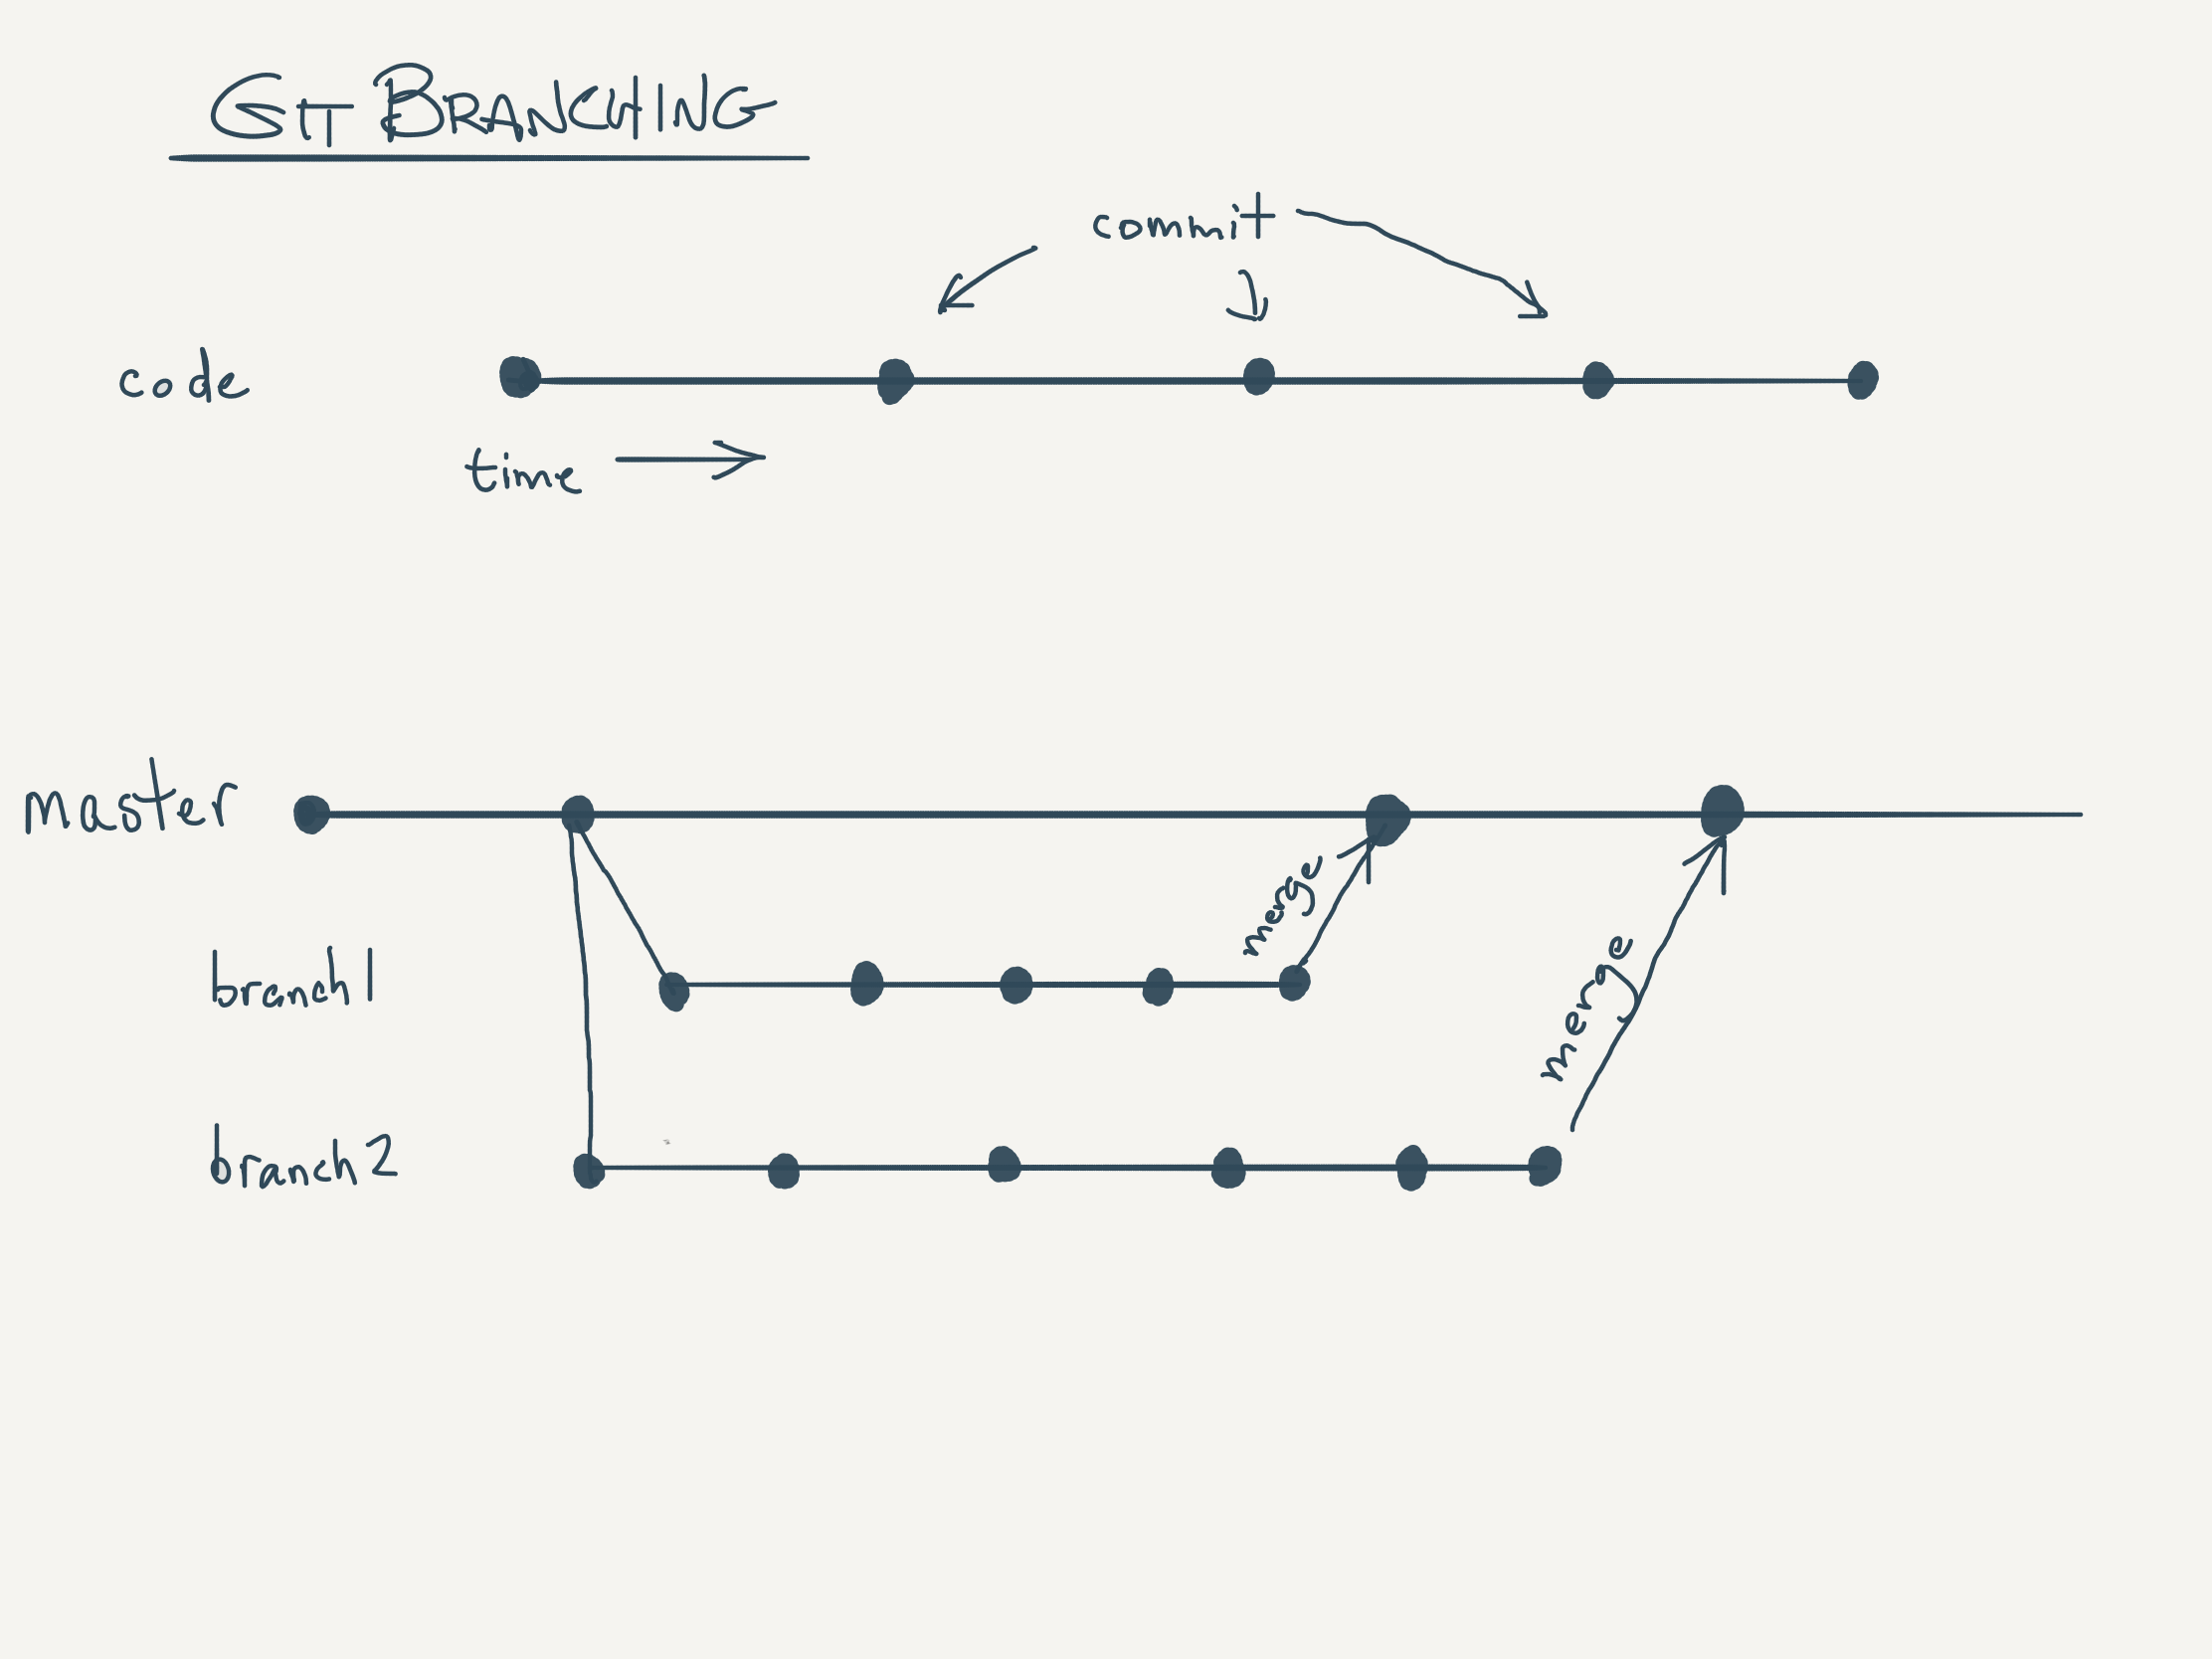 GIT BRANCHING
commit
code
time
master
merge
branch1
merge
branch2